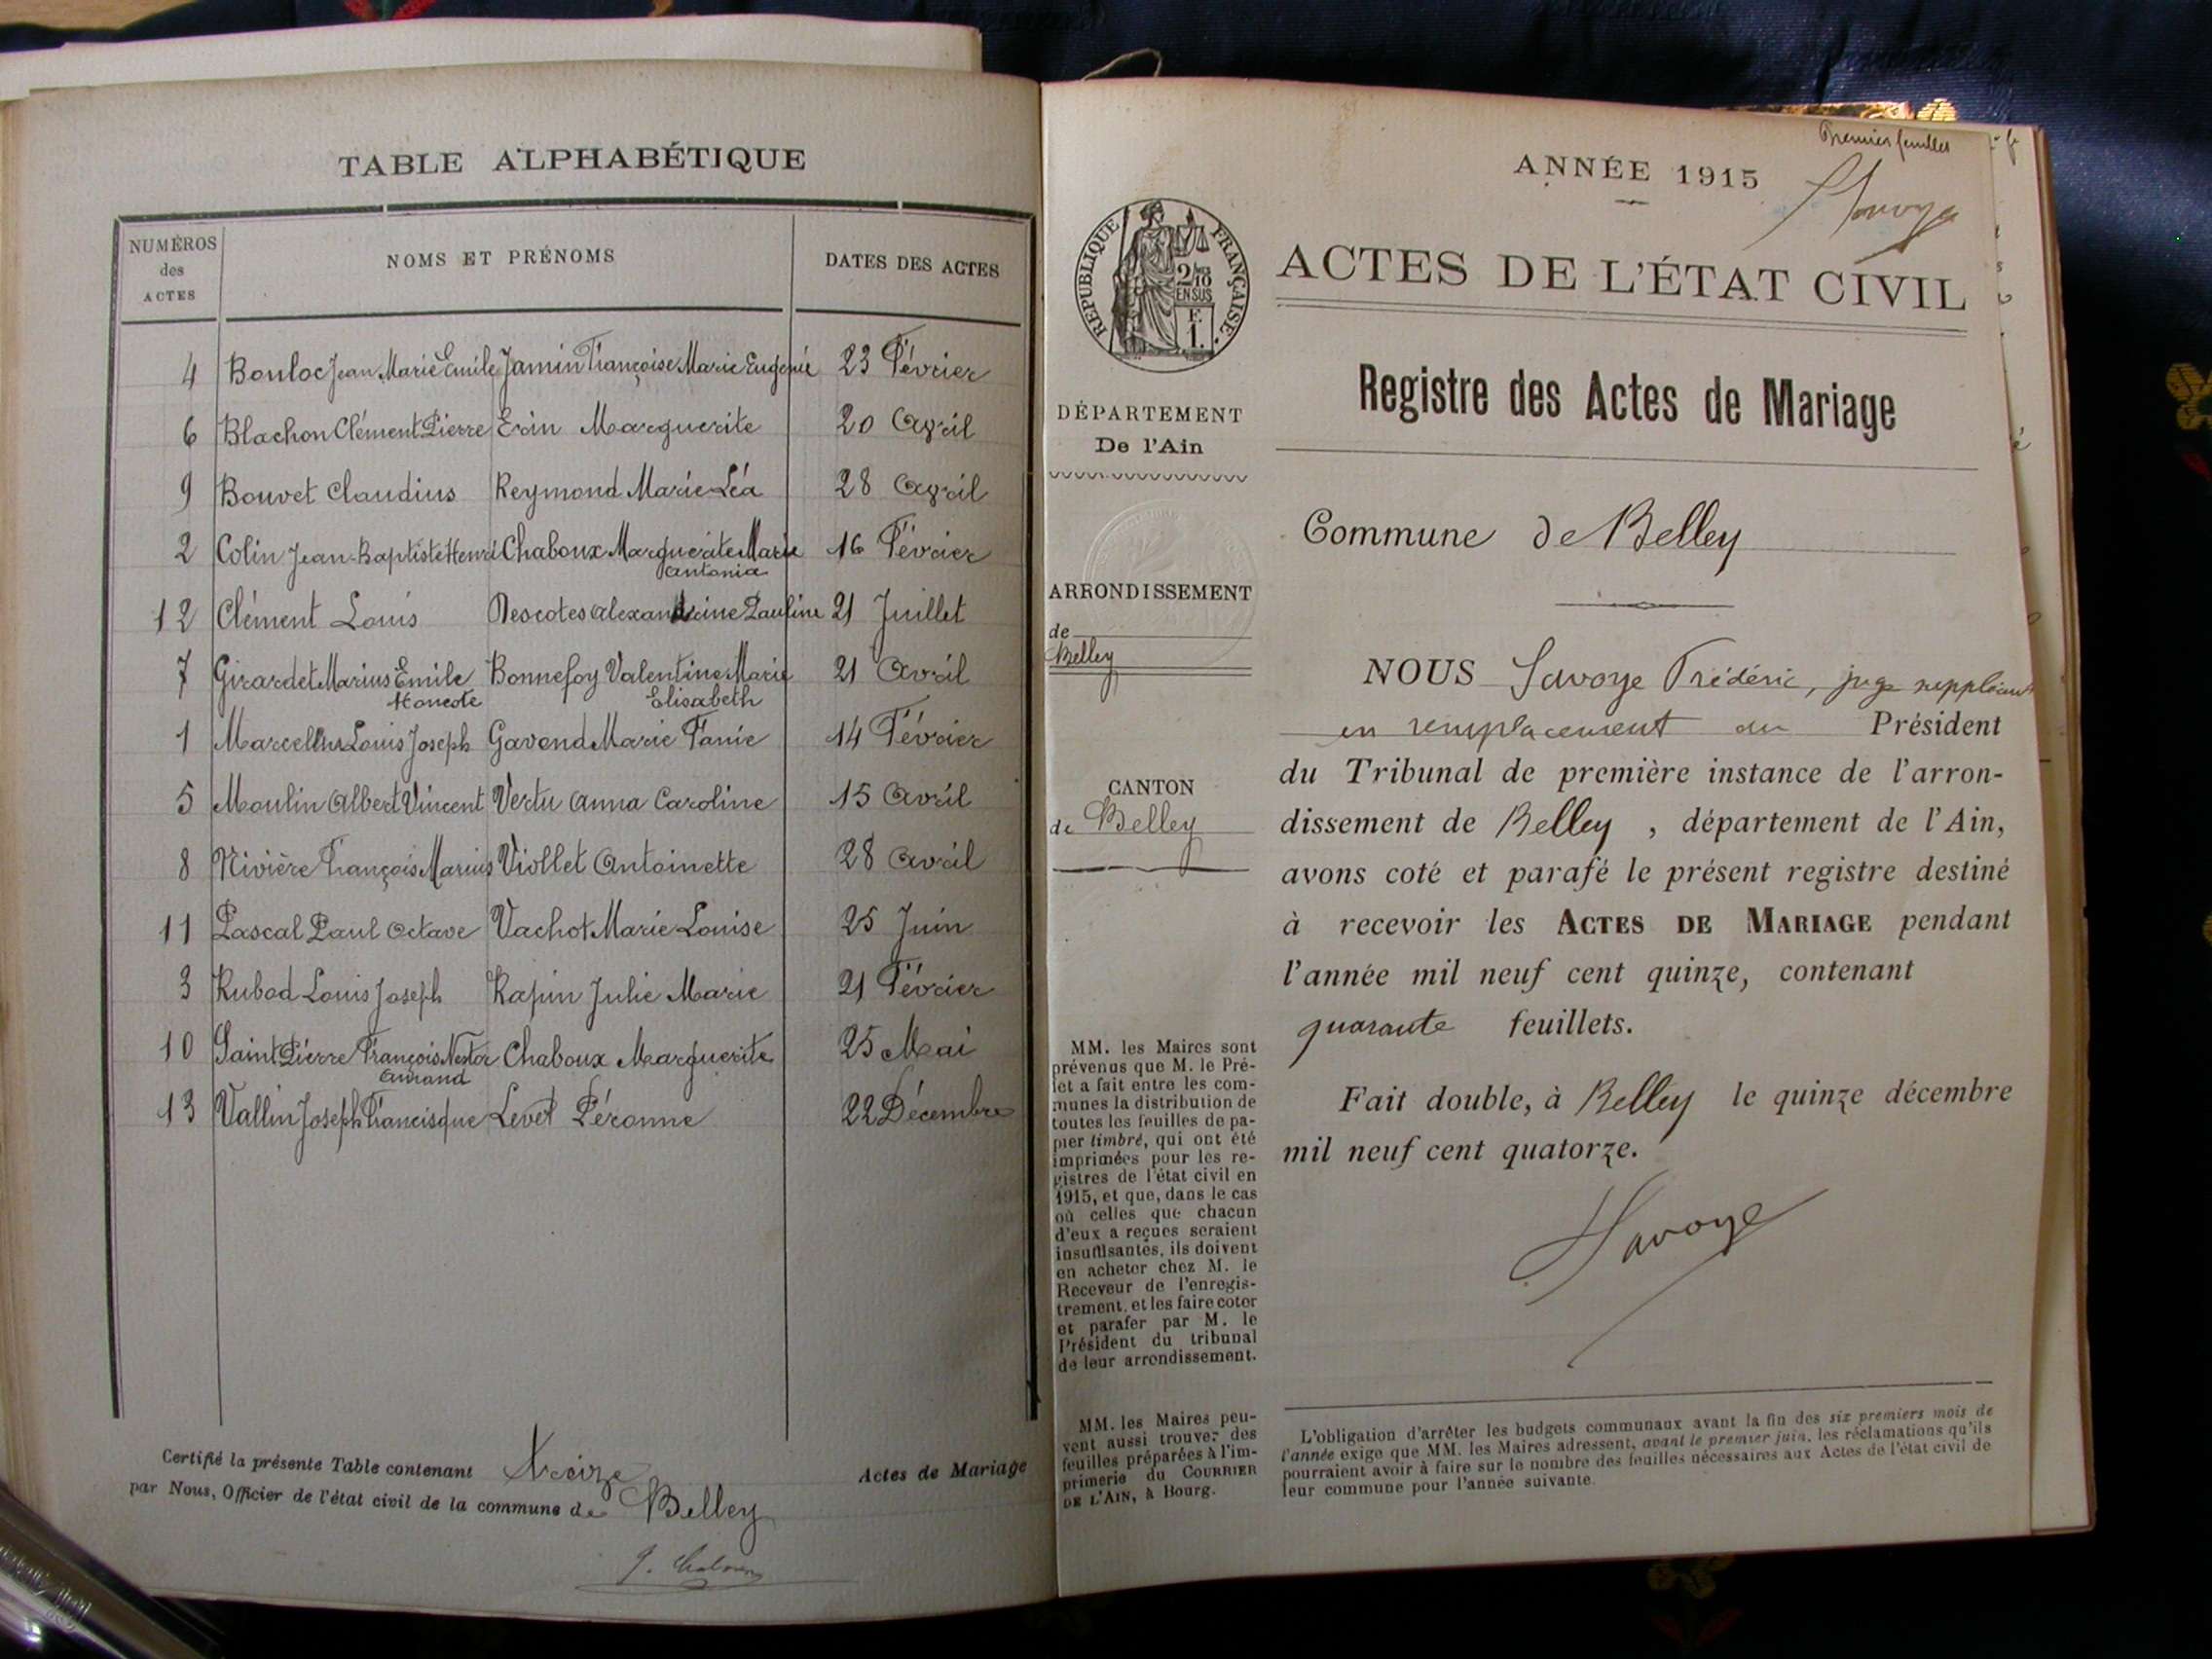 TABLE ALPHABÉTIQUE
NUMÉROS
des
ACTES
NOMS ET PRÉNOMS
DATES DES ACTES
4 Bouloc Jean Marie Emile Jamin Françoise Marie Eugenie 23 Février
6 Blachon Clément Pierre Erin Marguerite 20 Avril
9 Bouvet Claudius Reymond Marie Léa 28 Avril
2 Colin Jean-Baptiste Henri Chaboux Marguerite Marie 16 Février
Antonia
12 Clément Louis Descotes Alexandrine Pauline 21 Juillet
7 Girardet Marius Emile Bonnefoy Valentine Marie 21 Avril
Elisabeth
1 Marcel Louis Joseph Gavend Marie Fanie 14 Février
5 Moulin Albert Vincent Vertu Anna Caroline 15 Avril
8 Nivière François Marius Viollet Antoinette 28 Avril
11 Pascal Paul Octave Vachot Marie Louise 25 Juin
3 Rubod Louis Joseph Rapin Julie Marie 21 Février
10 Saint Pierre François Nestor Chaboux Marguerite 25 Mai
13 Vallin Joseph Francisque Levet Péronne 22 Décembre
Certifié la présente Table contenant treize Actes de Mariage
par Nous, Officier de l'état civil de la commune de Belley
Premier feuillet
ANNÉE 1915
Savoye
RÉPUBLIQUE FRANÇAISE.
2/10
EN SUS
F.
1.
ACTES DE L'ÉTAT CIVIL
Registre des Actes de Mariage
DÉPARTEMENT
De l'Ain
Commune de Belley
ARRONDISSEMENT
de
Belley
CANTON
de Belley
MM. les Maires sont
prévenus que M. le Pré-
fet a fait entre les com-
munes la distribution de
toutes les feuilles de pa-
pier timbré, qui ont été
imprimées pour les re-
gistres de l'état civil en
1915, et que, dans le cas
où celles que chacun
d'eux a reçues seraient
insuffisantes, ils doivent
en acheter chez M. le
Receveur de l'enregis-
trement, et les faire coter
et parafer par M. le
Président du tribunal
de leur arrondissement.
MM. les Maires peu-
vent aussi trouver des
feuilles préparées à l'im-
primerie du COURRIER
DE L'AIN, à Bourg.
NOUS Savoye Frédéric, juge suppléant
en remplacement du Président
du Tribunal de première instance de l'arron-
dissement de Belley, département de l'Ain,
avons coté et parafé le présent registre destiné
à recevoir les ACTES DE MARIAGE pendant
l'année mil neuf cent quinze, contenant
quarante feuillets.
Fait double, à Belley le quinze décembre
mil neuf cent quatorze.
Savoye
L'obligation d'arrêter les budgets communaux avant la fin des six premiers mois de
l'année exige que MM. les Maires adressent, avant le premier juin, les réclamations qu'ils
pourraient avoir à faire sur le nombre des feuilles nécessaires aux Actes de l'état civil de
leur commune pour l'année suivante.